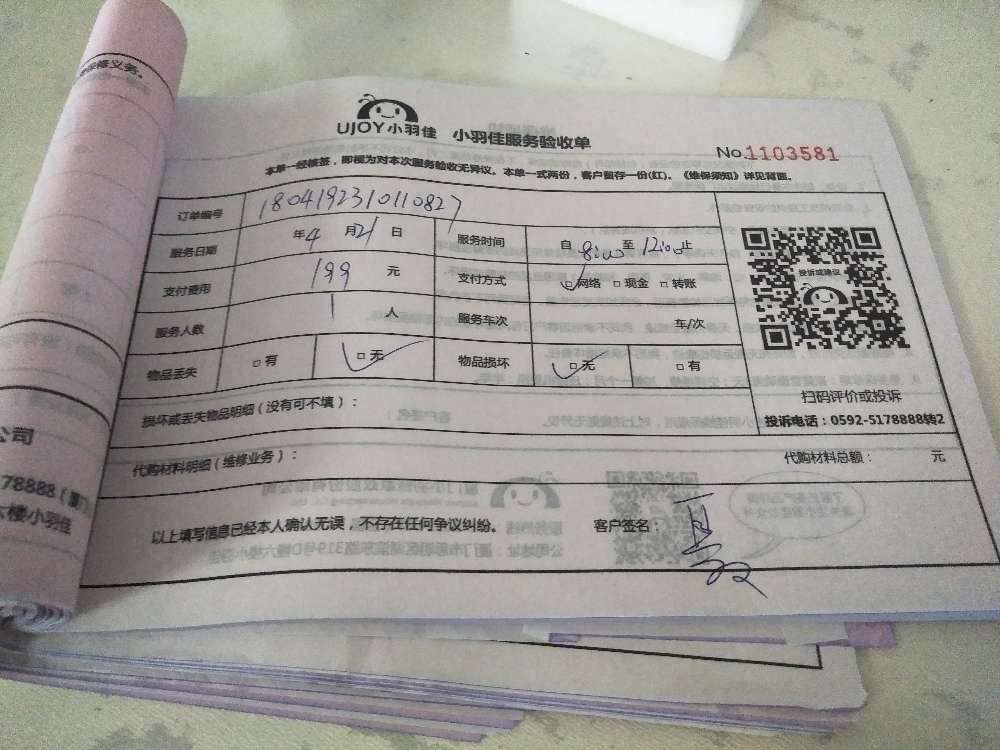 保修义务。
UJOY小羽佳 小羽佳服务验收单
No.1103581
本单一经核签，即视为对本次服务验收无异议。本单一式两份，客户留存一份(红)。《维保须知》详见背面。
订单编号 1804192310110827
服务日期 年4月21日 服务时间 自8:00至12:00止
支付费用 199元 支付方式 网络 □现金 □转账
服务人数 1人 服务车次 车/次
物品丢失 □有 □无 物品损坏 □无 □有
投诉或建议
扫码评价或投诉
投诉电话：0592-5178888转2
损坏或丢失物品明细（没有可不填）：
代购材料明细（维修业务）： 代购材料总额： 元
以上填写信息已经本人确认无误，不存在任何争议纠纷。 客户签名：
公司
78888（厦门
六楼小羽佳